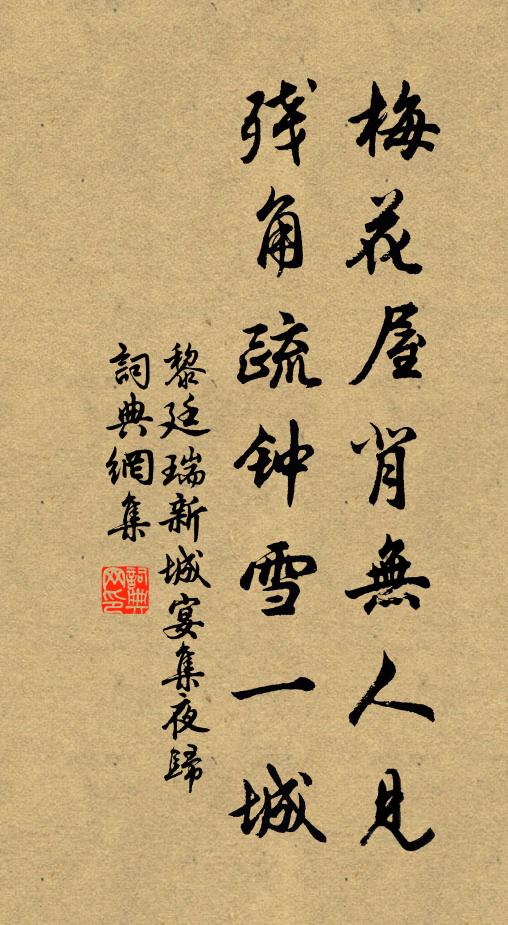 梅花屋背無人見
残角疏钟雪一城
黎廷瑞新城宴集夜歸
詞典網集
詞典網印